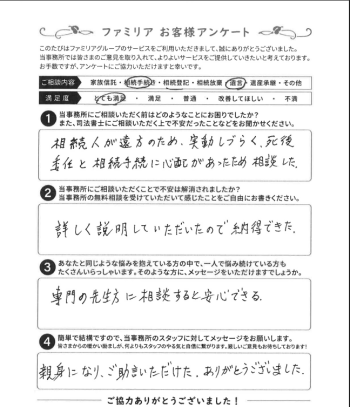 ファミリア お客様アンケート
このたびはファミリアグループのサービスをご利用いただきまして、誠にありがとうございました。
当事務所では皆さまのご意見を取り入れて、よりよいサービスをご提供していきたいと考えております。
お手数ですが、アンケートにご協力いただけますと幸いです。
ご相談内容 家族信託・相続手続き・相続登記・相続放棄・遺言・遺産承継・その他
満足度 とても満足 ・ 満足 ・ 普通 ・ 改善してほしい ・ 不満
1 当事務所にご相談いただく前はどのようなことにお困りでしたか?
また、司法書士にご相談いただく上で不安だったことなどをお聞かせください。
相続人が遠方のため、実動しづらく、死後
委任と相続手続に心配があったため相談した。
2 当事務所にご相談いただくことで不安は解消されましたか?
当事務所の無料相談を受けていただいて感じたことをご自由にお書きください。
詳しく説明していただいたので納得できた。
3 あなたと同じような悩みを抱えている方の中で、一人で悩み続けている方も
たくさんいらっしゃいます。そのような方に、メッセージをいただけますでしょうか。
専門の先生方に相談すると安心できる。
4 簡単で結構ですので、当事務所のスタッフに対してメッセージをお願いします。
皆さまからの暖かい励ましが、何よりもスタッフのやる気と自信に繋がります。厳しいご意見もお待ちしております!
親身になり、ご助言いただけた。ありがとうございました。
ご協力ありがとうございました!